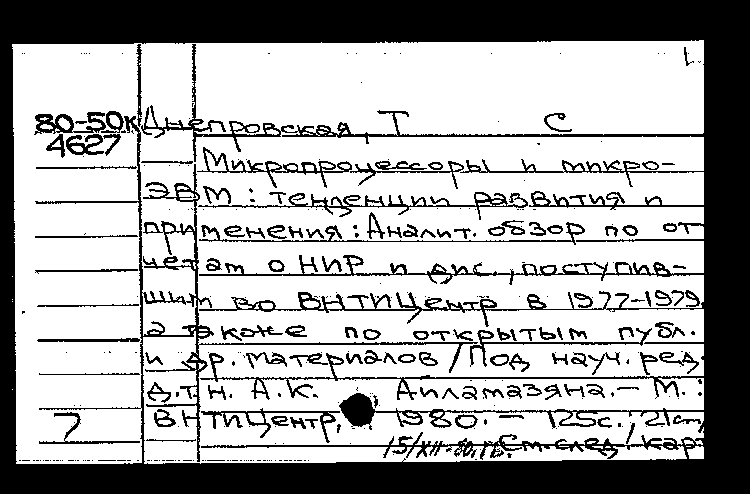 80-50к Днепровская, Т С
4627
Микропроцессоры и микро-
ЭВМ: тенденции развития и
применения: Аналит. обзор по от
четам о НИР и дис., поступив-
шим во ВНТИЦентр в 1977-1979,
а также по открытым публ.
и др. материалов / Под науч. ред.
д.т.н. А.К. Айламазяна. - М.:
7 ВНТИЦентр, 1980. - 125с.; 21см,
15/XII-80. См. след. карт